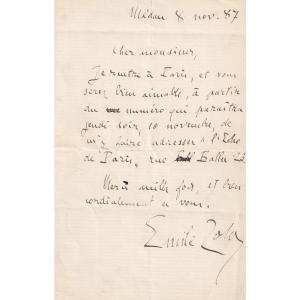 Médan 8 nov. 87
Cher monsieur,
Je rentre à Paris, et vous
serez bien aimable, à partir
du numéro qui paraîtra
jeudi soir, 10 novembre, de
m'y faire adresser « l'Echo
de Paris, rue Ballu
Merci mille fois, et bien
cordialement à vous.
Emile Zola